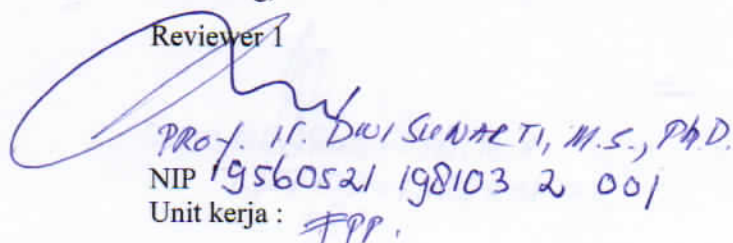 Reviewer 1
PROf. Ir. DWI SUNARTI, M.S., Ph.D.
NIP 19560521 198103 2 001
Unit kerja : FPP.